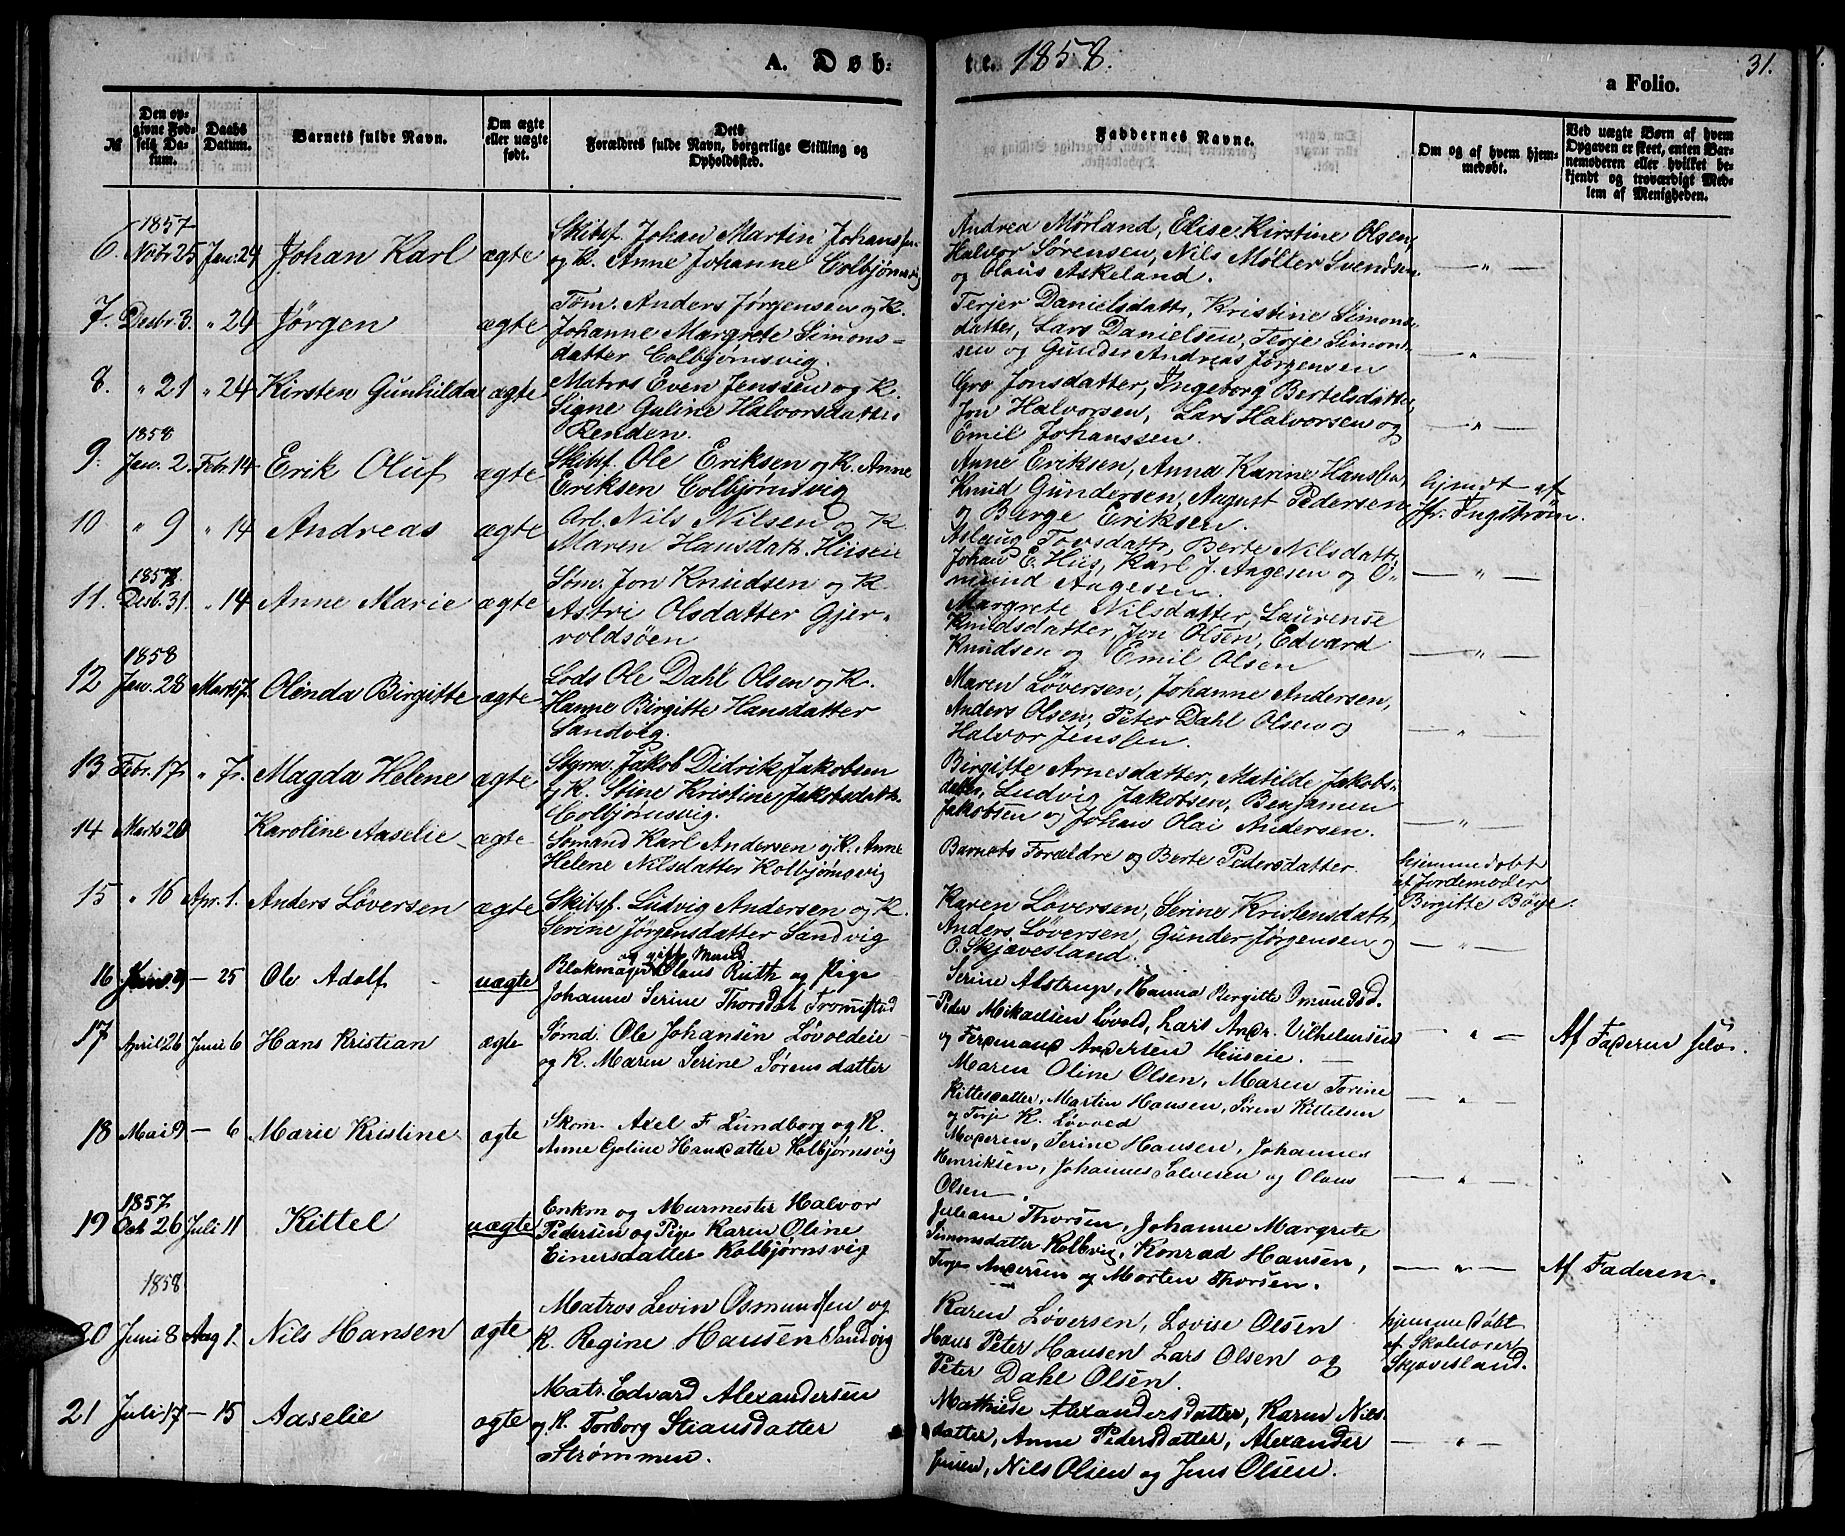 A. Døb-
te 1858.
31.
a Folio.
№
Den op-
givne Fød-
sels Da-
tum.
Daabs
Datum.
Barnets fulde Navn.
Om ægte
eller uægte
født.
Dets
Forældres fulde Navn, borgerlige Stilling og
Opholdssted.
Faddernes Navne.
Om og af hvem hjem-
medøbt.
Ved uægte Børn af hvem
Opgaven er skeet, enten Bar-
nemoderen eller hvilket be-
kjendt og troværdigt Med-
lem af Menigheden.
1857
6. Nobr 25 Jan. 24 Johan Karl ægte
Skibsf. Johan Martin Johanssen
og K. Anne Johanne Colbjørnsvig
Andrea Mørland, Elise Kirstine Olsen,
Halvor Sørensen, Nils Møller Svendsen
og Olaus Askeland.
— " —
7. Desbr 3. " 24 Jörgen ægte
Tøm. Anders Jørgensen og K.
Johanne Margrete Simons-
datter Colbjørnsvig.
Terjer Danielsdattr, Kristine Simons-
datter, Lars Danielsen, Terje Simon-
sen og Gunder Andreas Jørgensen
— " —
8. " 21 " 24 Kirsten Gunhilda ægte
Matros Even Jenssen og K.
Signe Guline Halvorsdatter
Renden.
Gro Jonsdatter, Ingeborg Bertelsdatter,
Jon Halvorsen, Lars Halvorsen og
Emil Johanssen.
— " —
1858
9. Jan. 2. Febr. 14 Erik Oluf ægte
Skibsf. Ole Eriksen og K. Anne
Eriksen Colbjørnsvig
Anne Eriksen, Anna Karine Hanssen,
Knud Gundersen, August Pedersen
og Berge Eriksen.
hjmdt af
Jfr. Ingstrøm.
10 " 9 " 14 Andreas ægte
Arb. Nils Nilsen og K.
Maren Hansdatt. Hiiseie
Aslaug Torsdattr, Berte Nilsdattr,
Johan E. Hiis, Karl J. Aagesen og O-
mund Aagesen.
— " —
1857
11. Desb. 31. " 14 Anne Marie ægte
Søm. Jon Knudsen og K.
Astri Olsdatter Gjer-
voldsøen
Margrete Nilsdatter, Laurense
Knudsdatter, Jon Olsen, Edvard
Knudsen og Emil Olsen
— " —
1858
12 Jan. 28 Marts 7. Olinda Birgitte ægte
Lods Ole Dahl Olsen og K.
Hanne Birgitte Hansdatter
Sandvig.
Maren Løversen, Johanne Andersen,
Anders Olsen, Peter Dahl Olsen og
Halvor Jenssen.
— " —
13 Febr. 17. " 7. Magda Helene ægte
Styrm. Jakob Didrik Jakobsen
og K. Stine Kristine Jakobsdattr.
Colbjørnsvig.
Birgitte Arnesdatter, Matilde Jakobs-
datter, Ludvig Jakobsen, Benjamen
Jakobsen og Johan Olai Andersen.
— " —
14 Marts 20 Karoline Aaselie ægte
Sømand Karl Andersen og K. Anne
Helene Nilsdatter Kolbjørnsvig
Barnets Forældre og Berte Pedersdatter.
hjemmedøbt
af Jordemoder
Birgitte Bøye.
15 " 16 Apr. 1. Anders Løversen ægte
Skibsf. Ludvig Andersen og K.
Serine Jørgensdatter Sandvig
Karen Løversen, Serine Kristensdattr,
Anders Løversen, Gunder Jørgensen og
O. Skjævesland.
— " —
16 Jan. 9 — 25 Ole Adolf uægte
og gift Mand
Blokmager Olaus Ruth og Pige
Johanne Serine Thorsdat Tromøstad
Serine Alstrup, Hanna Birgitte Omundsd.
Peder Mikaelsen Løvold, Lars Andr. Vilhelmsen
og Ferdinand Andersen Hiiseie.
— " —
Af Faderen selv.
17 April 26 Juni 6 Hans Kristian ægte
Sømd. Ole Johansen Løvoldeie
og K. Maren Serine Sørensdatter
Maren Oline Olsen, Maren Torine
Kittesdatter, Martin Hansen, Søren Kittelsen
og Terje K. Løvold
— " —
18 Mai 9 — 6 Marie Kristine ægte
Skom. Axel F. Lundborg og K.
Anne Goline Hansdatter Kolbjørnsvig
Moderen, Serine Hansen, Johannes
Henriksen, Johannes Salvesen og Olaus
Olsen.
— " —
1857.
19 Oct 26 Juli 11 Kittel uægte
Enkm og Murmester Halvor
Pedersen og Pige Karen Oline
Einersdatter Kolbjørnsvig
Juliane Thorsen, Johanne Margrete
Simonsdatter Kolbvig, Konrad Hansen,
Terje Andersen og Morten Thorsen.
— " —
Af Faderen.
1858
20 Juni 8 Aug 1. Nils Hansen ægte
Matros Levin Osmundsen og
K. Regine Hansen Sandvig
Karen Løversen, Lovise Olsen
Hans Peter Hansen Lars Olsen og
Peter Dahl Olsen.
hjemmedøbt
af Skolelærer
Skjævesland.
21 Juli 17 — 15 Aaselie ægte
Matr. Edvard Alexandersen
og K. Torborg Stiansdatter
Strømmen.
Mathilde Alexandersdatter, Karen Nils-
datter, Anne Pedersdatter, Alexander
Jensen, Nils Olsen og Jens Olsen.
— " —